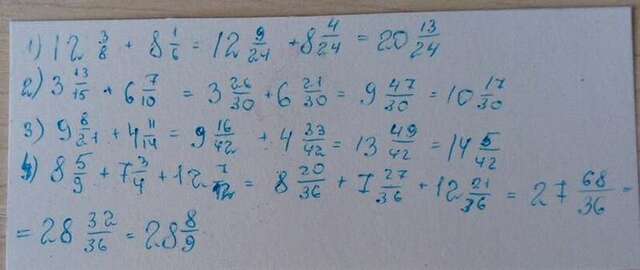 1) 12 3/8 + 8 1/6 = 12 9/24 + 8 4/24 = 20 13/24
2) 3 13/15 + 6 7/10 = 3 26/30 + 6 21/30 = 9 47/30 = 10 17/30
3) 9 8/21 + 4 11/14 = 9 16/42 + 4 33/42 = 13 49/42 = 14 5/42
4) 8 5/9 + 7 3/4 + 12 7/12 = 8 20/36 + 7 27/36 + 12 21/36 = 27 68/36 =
= 28 32/36 = 28 8/9